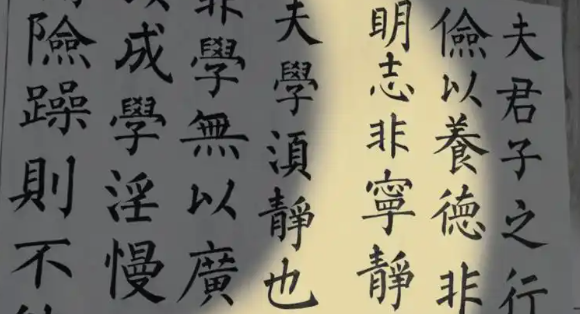 夫君子之行
儉以養德非
明志非寧靜
夫學須靜也
非學無以廣
成學淫慢
險躁則不